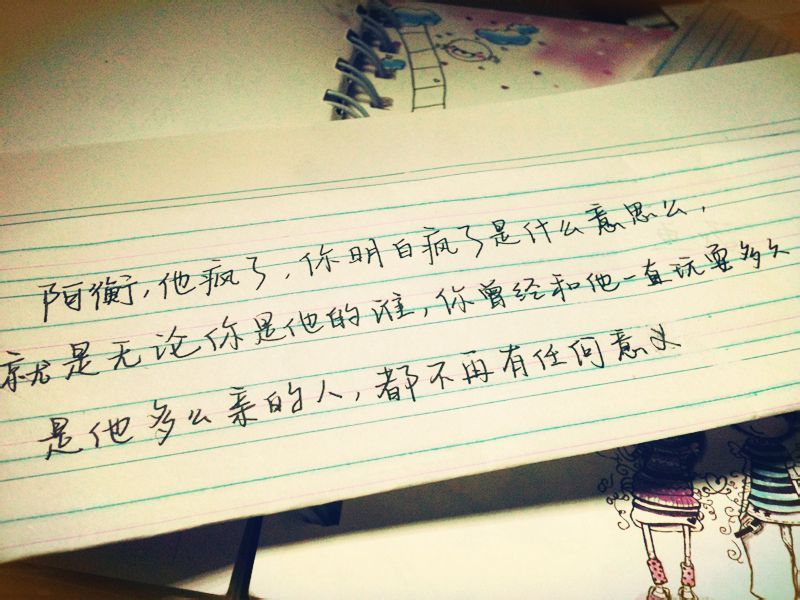 陌衡,他疯了,你明白疯了是什么意思么,
就是无论你是他的谁,你曾经和他一直玩耍多久
是他多么亲的人,都不再有任何意义